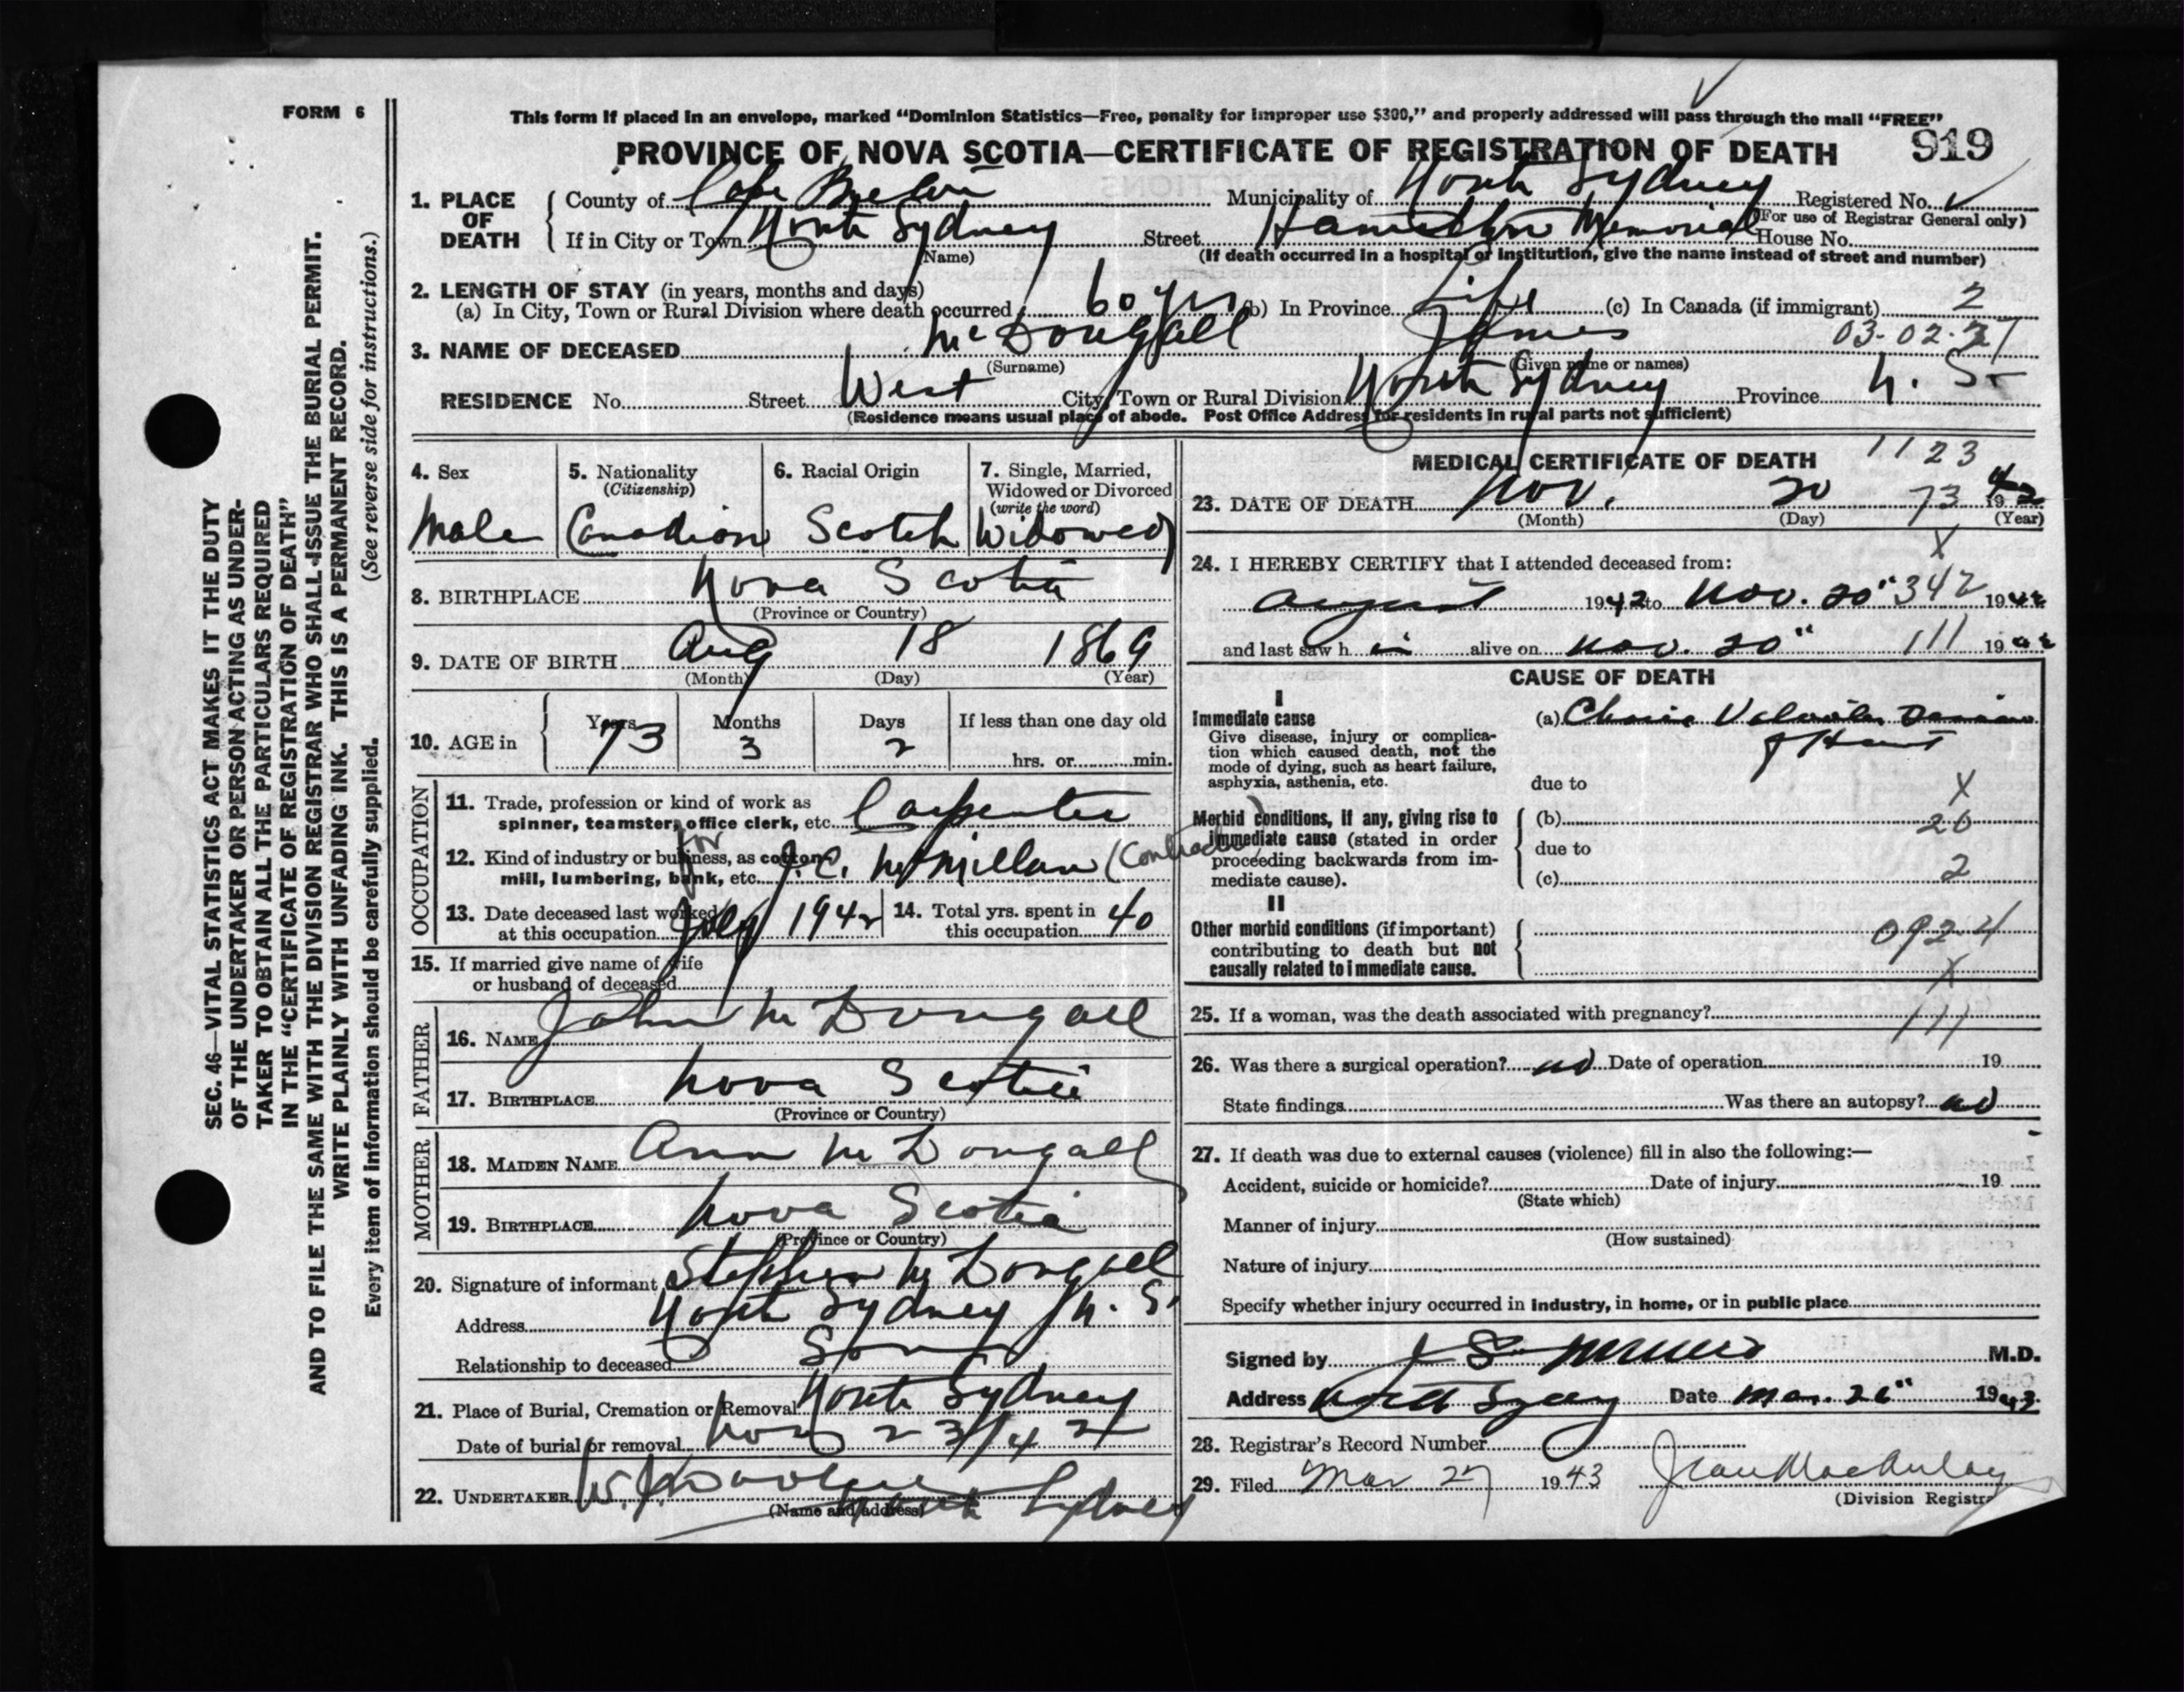 FORM 6
This form if placed in an envelope, marked “Dominion Statistics—Free, penalty for improper use $300,” and properly addressed will pass through the mail “FREE”
PROVINCE OF NOVA SCOTIA—CERTIFICATE OF REGISTRATION OF DEATH 919
1. PLACE OF DEATH
County of Cape Breton Municipality of North Sydney Registered No.
(For use of Registrar General only)
If in City or Town North Sydney Street Hamilton Memorial House No.
(Name) (If death occurred in a hospital or institution, give the name instead of street and number)
2. LENGTH OF STAY (in years, months and days)
(a) In City, Town or Rural Division where death occurred 60 yrs (b) In Province Life (c) In Canada (if immigrant) 2
03-02-27
3. NAME OF DECEASED McDougall James
(Surname) (Given name or names)
RESIDENCE No. Street West City, Town or Rural Division North Sydney Province N. S.
(Residence means usual place of abode. Post Office Address for residents in rural parts not sufficient)
4. Sex Male
5. Nationality (Citizenship) Canadian
6. Racial Origin Scotch
7. Single, Married, Widowed or Divorced (write the word) Widowed
8. BIRTHPLACE Nova Scotia
(Province or Country)
9. DATE OF BIRTH Aug 18 1869
(Month) (Day) (Year)
10. AGE in Years 73 Months 3 Days 2 If less than one day old hrs. or min.
OCCUPATION
11. Trade, profession or kind of work as
spinner, teamster, office clerk, etc. Carpenter
12. Kind of industry or business, as cotton
mill, lumbering, bank, etc. for J.C. McMillan (Contractor)
13. Date deceased last worked
at this occupation July 1942
14. Total yrs. spent in
this occupation 40
15. If married give name of wife
or husband of deceased
FATHER
16. NAME John McDougall
17. BIRTHPLACE Nova Scotia
(Province or Country)
MOTHER
18. MAIDEN NAME Ann McDougall
19. BIRTHPLACE Nova Scotia
(Province or Country)
20. Signature of informant Stephen McDougall
Address North Sydney N. S.
Relationship to deceased Son
21. Place of Burial, Cremation or Removal North Sydney
Date of burial or removal Nov 23/42
22. UNDERTAKER W. J. North Sydney
(Name and address)
MEDICAL CERTIFICATE OF DEATH 1123
23. DATE OF DEATH Nov. 20 73 1942
(Month) (Day) (Year)
X
24. I HEREBY CERTIFY that I attended deceased from:
August 1942 to Nov. 20" 342 1942
and last saw h im alive on Nov. 20" 111 1942
CAUSE OF DEATH
I
Immediate cause
Give disease, injury or complica-
tion which caused death, not the
mode of dying, such as heart failure,
asphyxia, asthenia, etc.
(a) Chronic Valvular Disease
of Heart
due to X
Morbid conditions, if any, giving rise to
immediate cause (stated in order
proceeding backwards from im-
mediate cause).
(b) 20
due to
(c) 2
II
Other morbid conditions (if important)
contributing to death but not
causally related to immediate cause.
092-4
X
25. If a woman, was the death associated with pregnancy? 111
26. Was there a surgical operation? no Date of operation 19
State findings Was there an autopsy? no
27. If death was due to external causes (violence) fill in also the following:—
Accident, suicide or homicide? Date of injury 19
(State which)
Manner of injury
(How sustained)
Nature of injury
Specify whether injury occurred in industry, in home, or in public place
Signed by M.D.
Address North Sydney Date Mar. 26" 1943
28. Registrar’s Record Number
29. Filed Mar 27 1943 Jean MacAulay
(Division Registr
SEC. 46—VITAL STATISTICS ACT MAKES IT THE DUTY
OF THE UNDERTAKER OR PERSON ACTING AS UNDER-
TAKER TO OBTAIN ALL THE PARTICULARS REQUIRED
IN THE “CERTIFICATE OF REGISTRATION OF DEATH”
AND TO FILE THE SAME WITH THE DIVISION REGISTRAR WHO SHALL ISSUE THE BURIAL PERMIT.
WRITE PLAINLY WITH UNFADING INK. THIS IS A PERMANENT RECORD.
Every item of information should be carefully supplied. (See reverse side for instructions.)